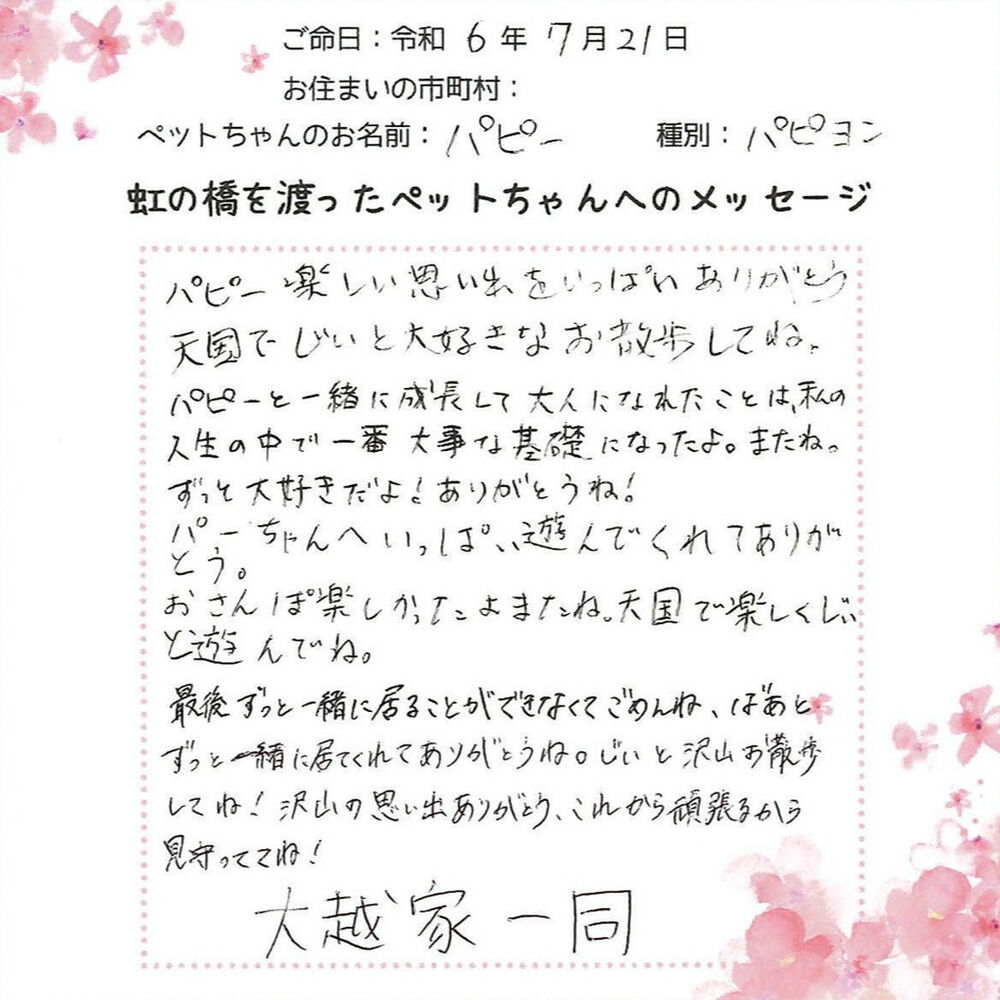 ご命日：令和 6 年 7 月 21 日
お住まいの市町村：
ペットちゃんのお名前： パピー 種別： パピヨン
虹の橋を渡ったペットちゃんへのメッセージ
パピー 楽しい思い出をいっぱい ありがとう
天国で じいと大好きな お散歩してね。
パピーと一緒に成長して大人になれたことは、私の
人生の中で一番大事な基礎になったよ。またね。
ずっと大好きだよ！ありがとうね！
パーちゃんへ いっぱい遊んでくれてありが
とう。
おさんぽ楽しかったよまたね。天国で楽しくじい
と遊んでね。
最後ずっと一緒に居ることができなくてごめんね、ばあと
ずっと一緒に居てくれてありがとうね。じいと沢山お散歩
してね！沢山の思い出ありがとう、これから頑張るから
見守っててね！
大越家一同